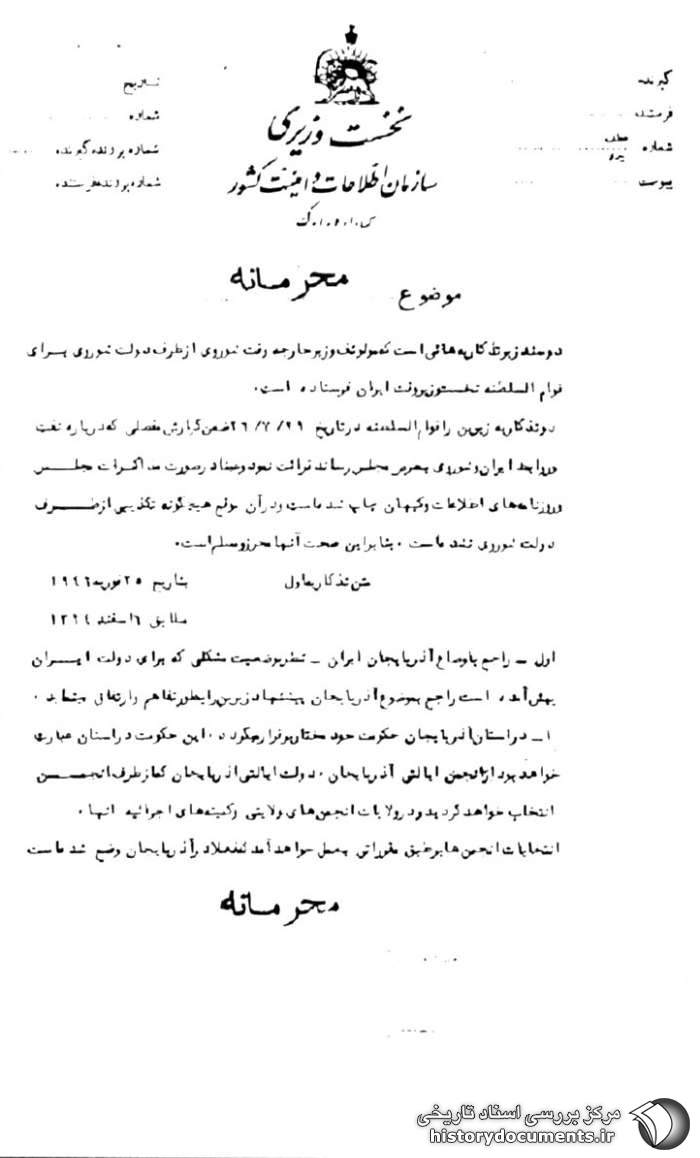 گیرنده
فرستنده
شماره عطف پیرو
پیوست
نخست وزیری
سازمان اطلاعات و امنیت کشور
تاریخ
شماره
شماره پرونده گیرنده
شماره پرونده فرستنده
محرمانه
موضوع
دو سند زیر تذکاریه هائی است که مولوتف وزیر خارجه وقت شوروی از طرف دولت شوروی بـرای
قوام السلطنه نخست وزیر وقت ایران فرستاده است.
دو تذکاریه زیرین را قوام السلطنه در تاریخ ۲۹/ ۷/ ۲۶ ضمن گزارش مفصلی که درباره نفت
و روابط ایران و شوروی بعرض مجلس رساند قرائت نمود و عینا در صورت مذاکـرات مجلـس
و روزنامه های اطلاعات و کیهان چاپ شده است و در آن موقع هیچگونه تکذیبی از طـــرف
دولت شوروی نشده است ، بنابراین صحت آنها محرز و مسلم است.
متن تذکاریه اول بتاریخ ۲۵ فوریه ۱۹۴۶
مطابق ۶ اسفند ۱۳۲۴
اول ـ راجع باوضاع آذربایجان ایران ـ نظر بوضعیت مشکلی که برای دولت ایـــران
پیش آمده است راجع بموضوع آذربایجان پیشنهاد زیرین را بطور تفاهم و ارتفاقی مینماید .
۱ـ در استان آذربایجان حکومت خود مختار برقرار میگردد ، این حکومت در استان عبارت
خواهد بود از انجمن ایالتی آذربایجان ، دولت ایالتی آذربایجان که از طرف انجمـــن
انتخاب خواهد گردید و در ولایات انجمن های ولایتی و کمیته های اجرائیه آنها .
انتخابات انجمن ها بر طبق مقرراتی بعمل خواهد آمد که فعلا در آذربایجان وضع شده است
محرمانه
مرکز بررسی اسناد تاریخی
historydocuments.ir